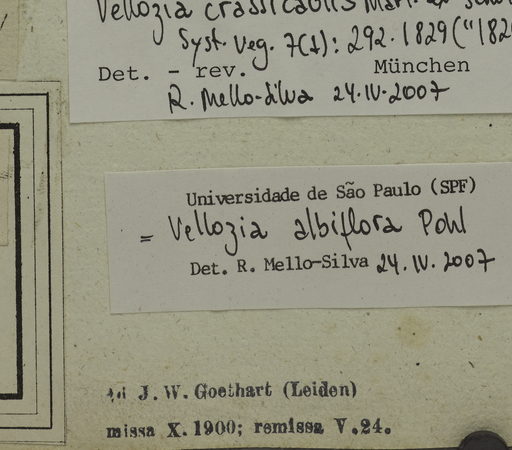 Vellozia crassicaulis Mart. ex
Syst. Veg. 7(1): 292. 1829 ("182
Det. - rev. München
R. Mello-Silva 24.IV.2007
Universidade de São Paulo (SPF)
= Vellozia albiflora Pohl
Det. R. Mello-Silva 24.IV.2007
Ad J. W. Goethart (Leiden)
missa X. 1900; remissa V.24.